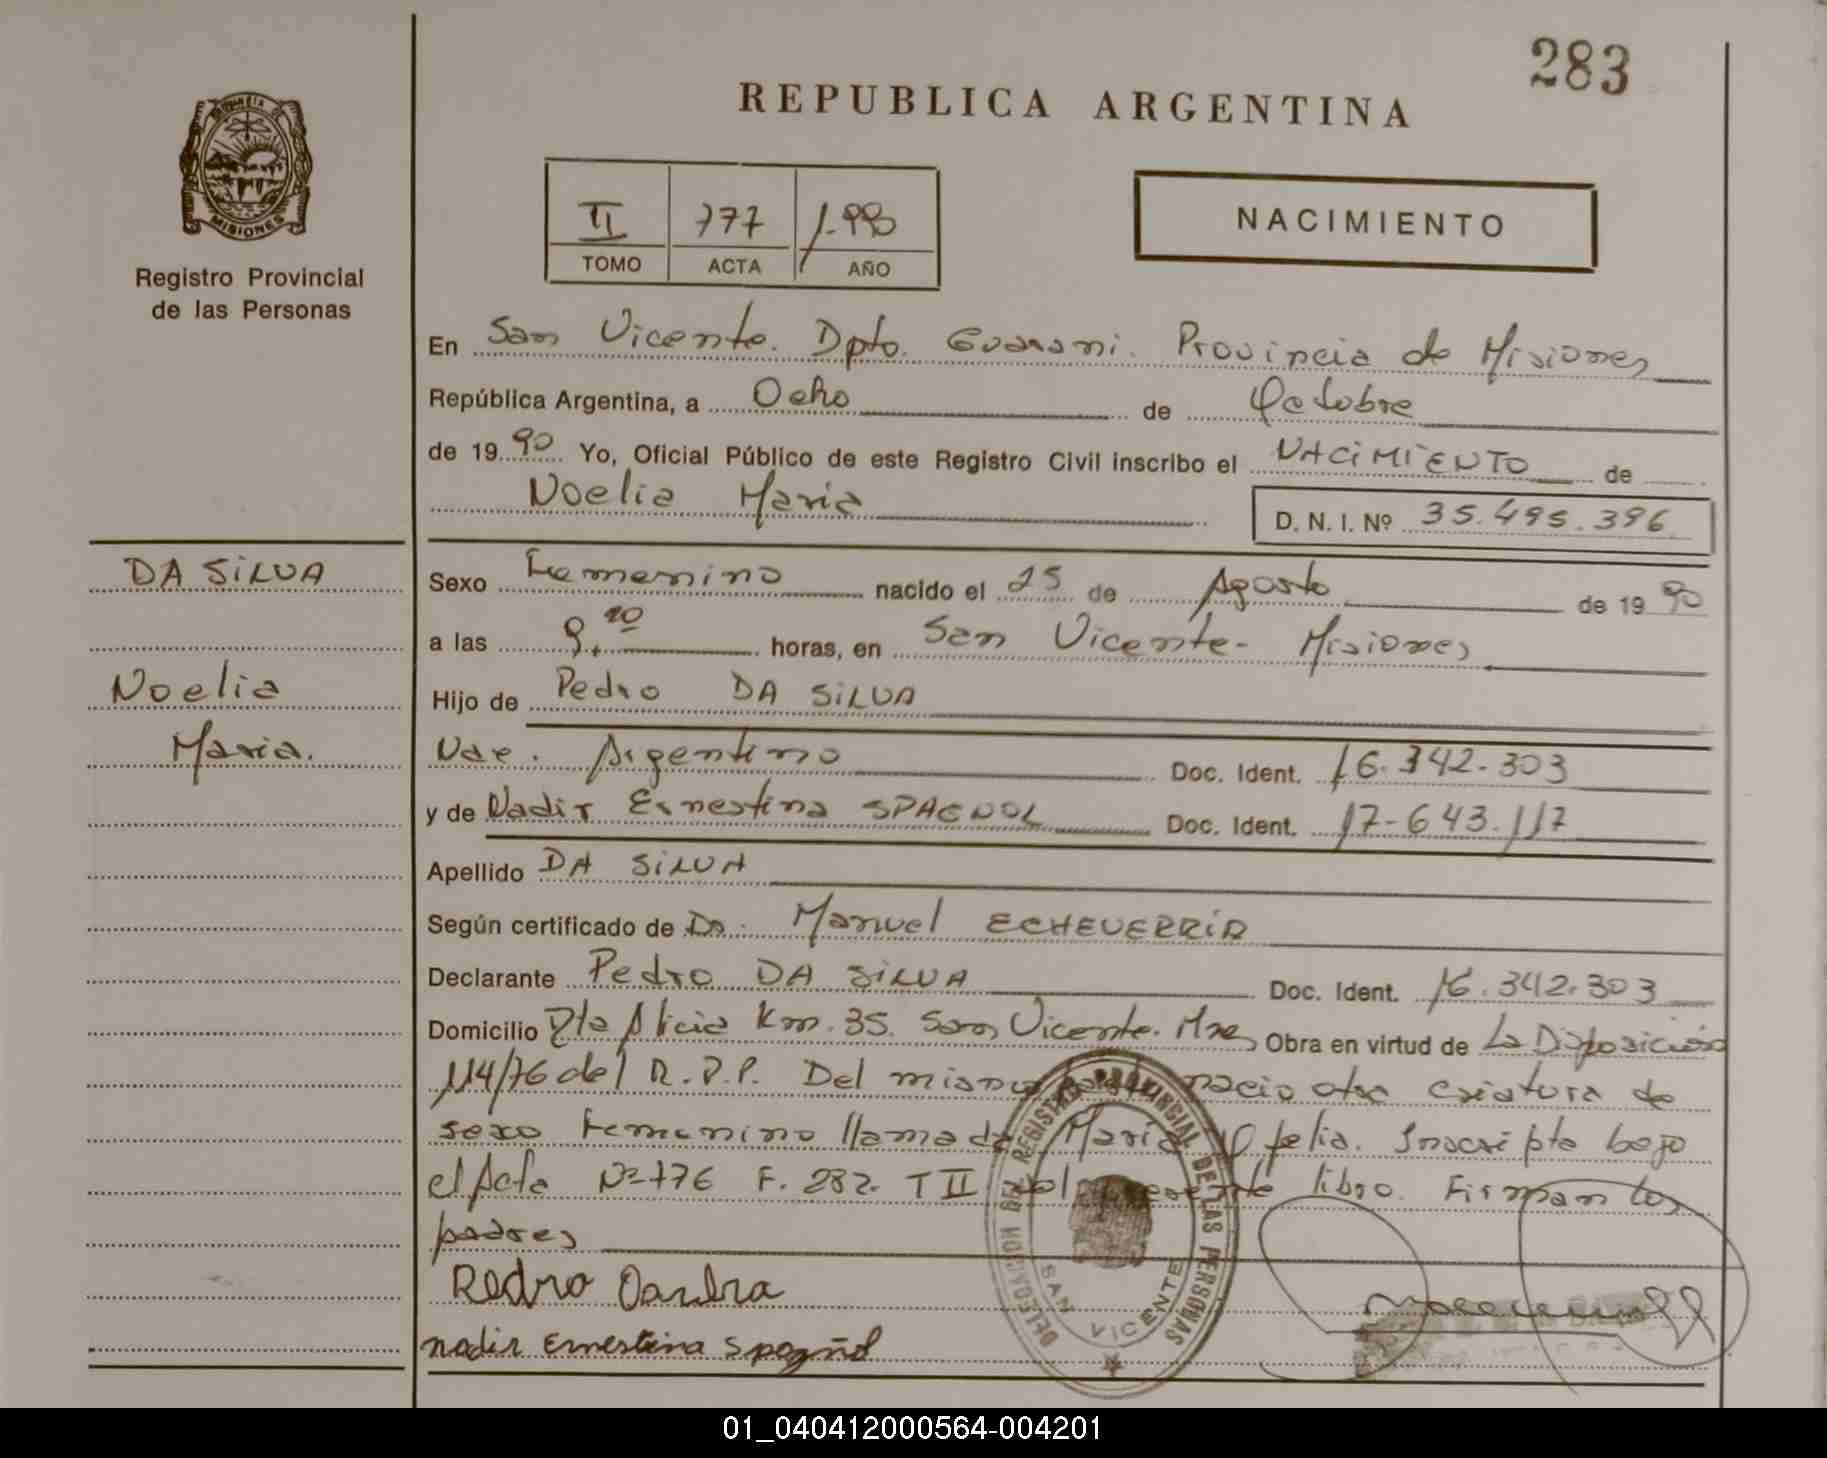 283
REPUBLICA ARGENTINA
PROVINCIA DE
MISIONES
Registro Provincial
de las Personas
II 777 1.990
TOMO ACTA AÑO
NACIMIENTO
En San Vicente. Dpto. Guarani. Provincia de Misiones
República Argentina, a Ocho de Octubre
de 1990 Yo, Oficial Público de este Registro Civil inscribo el NACIMIENTO de
Noelia Maria
D. N. I. Nº 35.495.396
DA SILVA
Noelia
Maria.
Sexo Femenino nacido el 25 de Agosto de 1990
a las horas, en San Vicente- Misiones
Hijo de Pedro DA SILVA
Nac. Argentino Doc. Ident. 16.342.303
y de Nadir Ernestina SPAGNOL Doc. Ident. 17-643.117
Apellido DA SILVA
Según certificado de Dr. Manuel ECHEVERRÍA
Declarante Pedro DA SILVA Doc. Ident. 16.342.303
Domicilio Pto Alicia Km. 35. San Vicente. Mnes Obra en virtud de La Disposición
114/76 del R.P.P. Del mismo parto nacio otra criatura de
sexo Femenino llamada Maria Ofelia. Inscripta bajo
el Acta Nº 776 F. 282. T II del presente libro. Firman los
padres
Pedro Dasilva
nadir Ernestina Spagnol
DELEGACION DEL REGISTRO PROVINCIAL DE LAS PERSONAS
SAN VICENTE
01_040412000564-004201